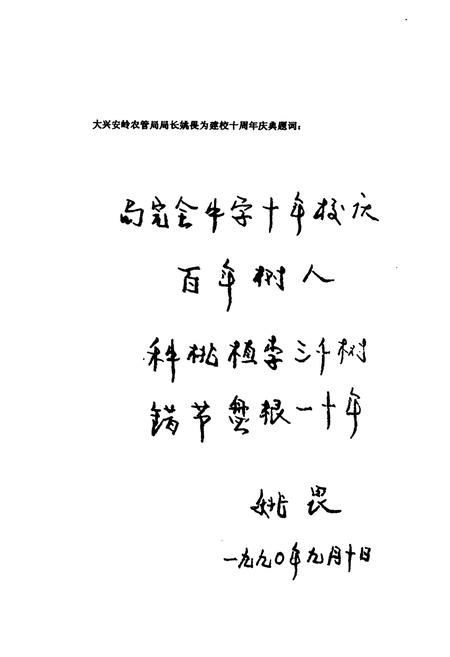 大兴安岭农管局局长姚畏为建校十周年庆典题词：
局完全中学十年校庆
百年树人
种桃植李三千树
错节盘根一十年
姚畏
一九九〇年九月十日